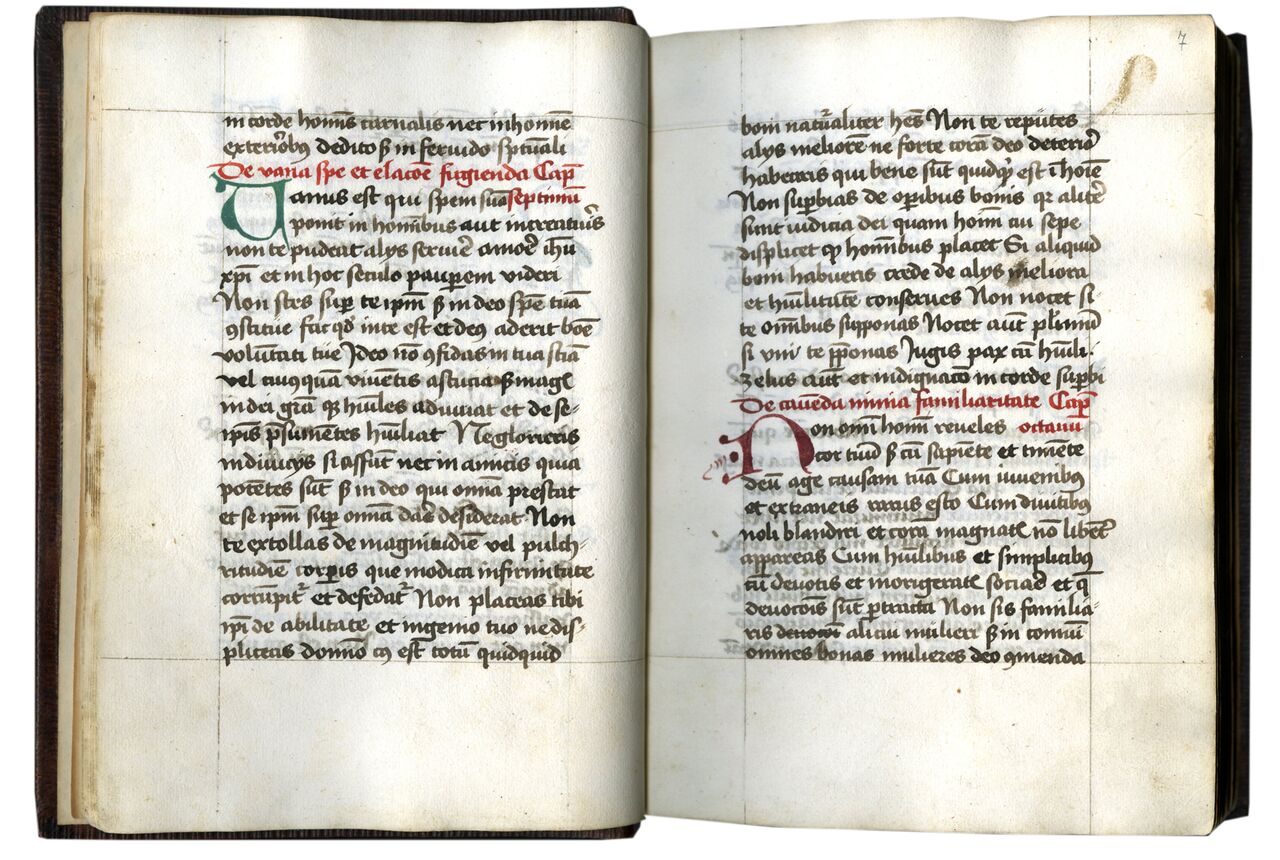 in corde hominis carnalis nec in homīe
exteriorib9 dedito s̄ in feruido sp̄tuali
De vana spe et elacōe fugienda Cap̄
Uanus est qui spem suā septimū
ponit in hominibus aut in creaturis
non te pudeat alijs seruire amore ih̄u
xp̄i et in hoc seculo pauꝑem videri
Non stes suꝑ te ip̄m s̄ in deo spē tuā
ꝯstitue fac qd̄ in te est et de9 aderit bōe
volūtati tue Ideo nō ꝯfidas in tua sciā
vel cuiusquā viuētis astucia s̄ magꝭ
in dei grā qͥ hūiles adiuuat et de se-
ip̄is p̄sumētes hūiliat Ne glorieris
in diuicijs si assūt nec in amicis quia
potētes sūt s̄ in deo qui om̄ia prestat
et se ip̄m suꝑ om̄ia dare desiderat Non
te extollas de magnitudīe vel pulch-
ritudīe corꝑis que modica infirmitate
corrūpit᷑ et defedat᷑ Non placeas tibi
ip̄i de abilitate et ingenio tuo ne dis-
pliceas domīo cui9 est totū quidquid
7
boni natural̓iter hēs Non te reputes
alijs meliorē ne forte corā deo deterior
habearis qui bene scit quidqͥd est ī hoīe
Non suꝑbias de oꝑibus bonis qr alit̓
sunt iudicia dei quam hominū cui sepe
displicet qd̄ hominibus placet Si aliquid
boni habueris crede de alijs meliora
et hūilitatē conserues Non nocet si
te omnibus supponas Nocet aūt pl̓imū
si vni te p̄ponas Jugis pax cū hūili.
zelus aūt et indignacō in corde suꝑbi
De cauēda nimia familiaritate Cap̄
Non omī homī reueles octauū
cor tuū s̄ cū sapiēte et timēte
deū age causam tuā Cum iuuenib9
et extraneis rarus esto Cum diuitib9
noli blandiri et corā magnatꝭ nō libēt̓
appareas Cum hūilibus et simplicib9
cū deuotis et morigeratꝭ sociare et q̄
deuocōis sūt ꝑtracta Non sis familia-
ris alicui mulieri s̄ in comūi
omnes bonas mulieres deo ꝯmenda